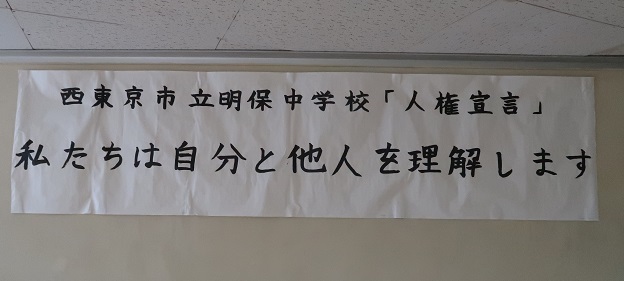 西東京市立明保中学校「人権宣言」
私たちは自分と他人を理解します